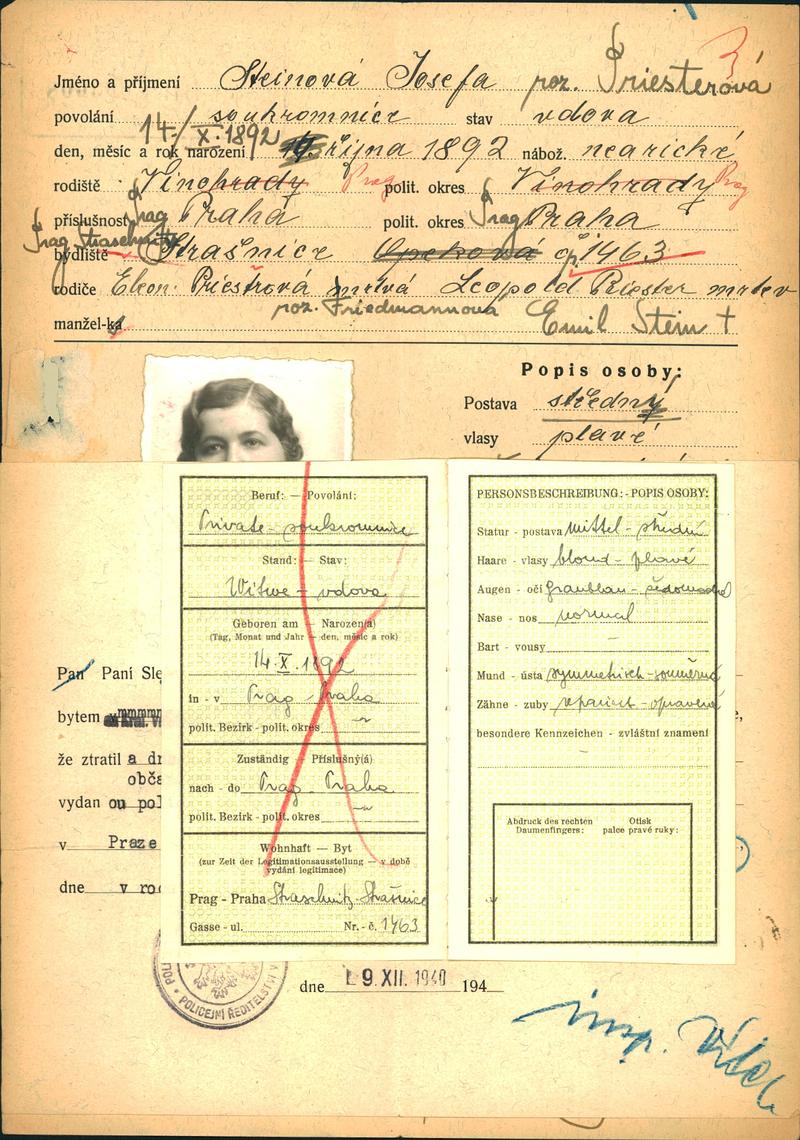 3
Jméno a příjmení Steinová Josefa roz. Priesterová
povolání soukromnice stav vdova
14./X.1892
den, měsíc a rok narození října 1892 nábož. nearické
rodiště Vinohrady Prag polit. okres Vinohrady Prag
příslušnost Prag Praha polit. okres Prag Praha
Prag Straschnitz
bydliště Strašnice čp. 1463
rodiče Eleon. Priestrová mrtvá Leopold Priester mrtev
roz. Friedmannová
manžel-ka Emil Stein †
Popis osoby:
Postava střední
vlasy plavé
Beruf: — Povolání:
Private - soukromnice
Stand: — Stav:
Witwe - vdova
Geboren am — Narozen(a)
(Tag, Monat und Jahr — den, měsíc a rok)
14.X.1892
in - v Prag - Praha
polit. Bezirk - polit. okres "
Zuständig — Příslušný(á)
nach - do Prag - Praha
polit. Bezirk - polit. okres "
Wohnhaft — Byt
(zur Zeit der Legitimationsausstellung — v době
vydání legitimace)
Prag - Praha Straschnitz-Strašnice
Gasse - ul. Nr. - č. 1463
PERSONSBESCHREIBUNG: - POPIS OSOBY:
Statur - postava mittel - střední
Haare - vlasy blond - plavé
Augen - oči graublau - šedomodré
Nase - nos normal
Bart - vousy —
Mund - ústa symmetrisch - souměrná
Zähne - zuby repariert - opravené
besondere Kennzeichen - zvláštní znamení
Abdruck des rechten Daumenfingers:
Otisk palce pravé ruky:
Pan Paní Sle
bytem
že ztratil a dr
obča
vydan ou pol
v Praze
dne v roc
POLICEJNÍ ŘEDITELSTVÍ V
dne 9. XII. 1940 194